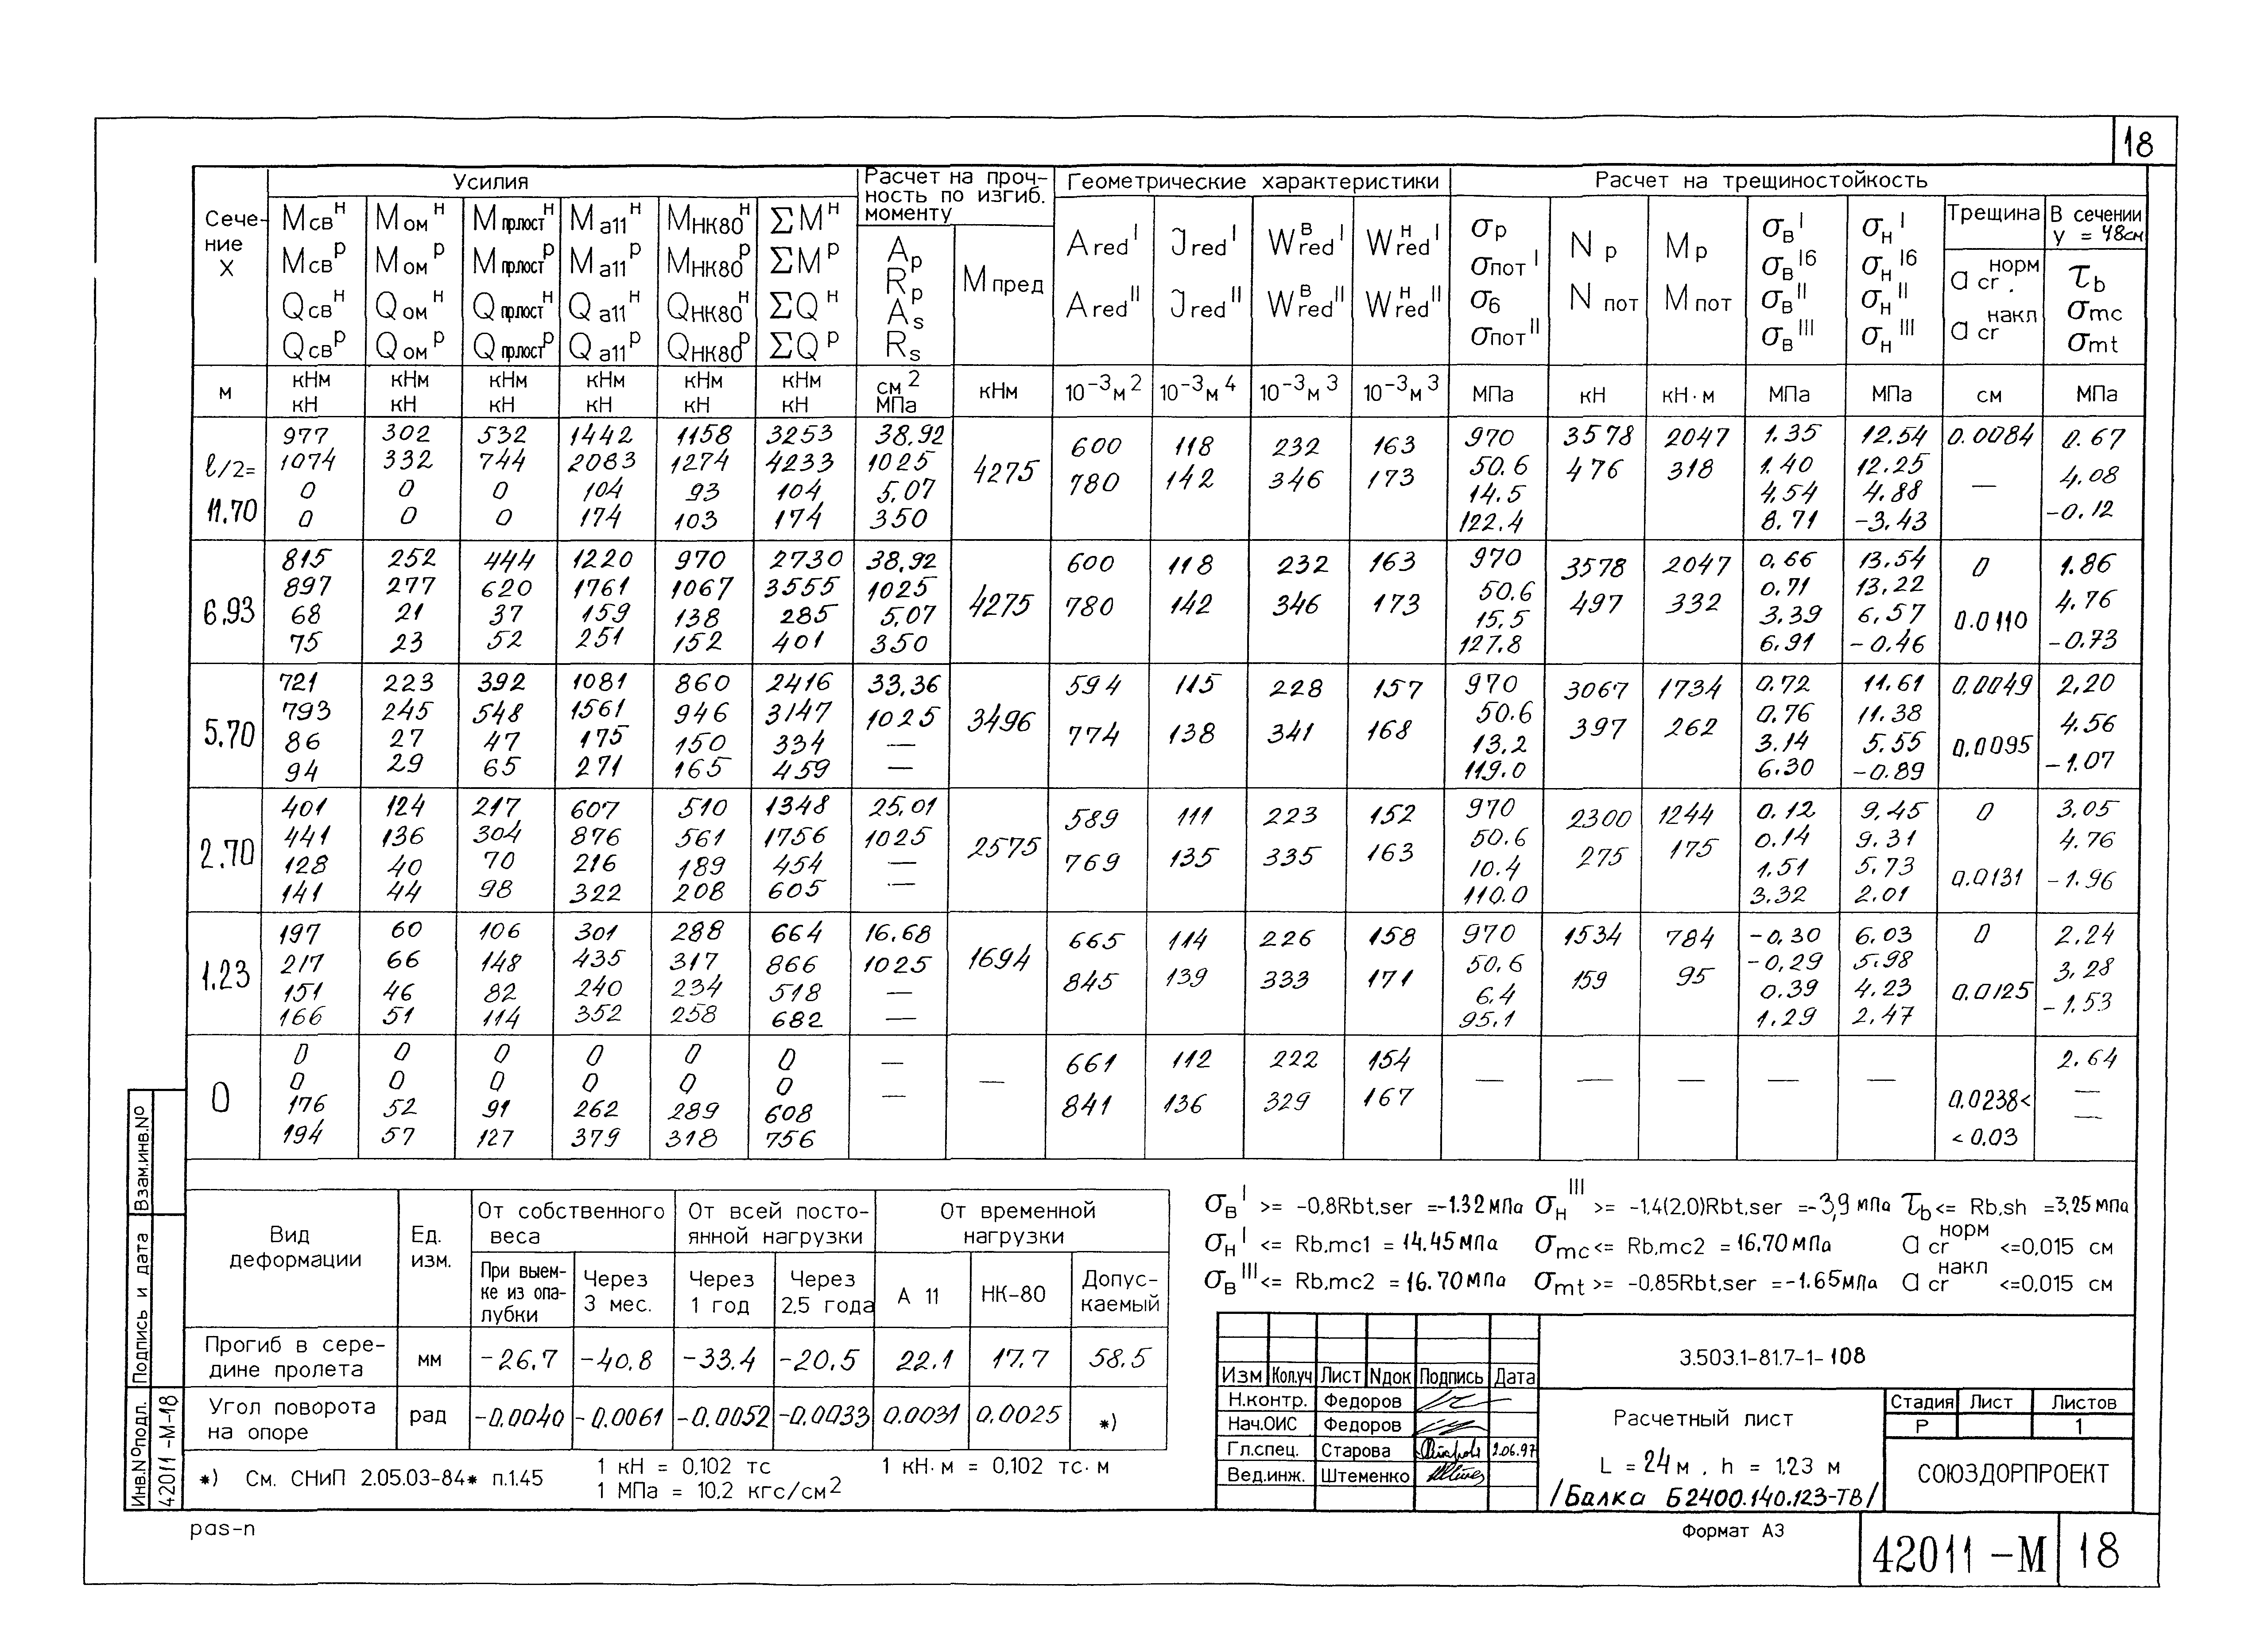 18
Сече-
ние
X
Усилия
Расчет на проч-
ность по изгиб.
моменту
Геометрические характеристики
Расчет на трещиностойкость
Mсвᴴ Mомᴴ Mпрлостᴴ Mа11ᴴ Mнк80ᴴ ΣMᴴ
Mсвᴾ Mомᴾ Mпрлостᴾ Mа11ᴾ Mнк80ᴾ ΣMᴾ
Qсвᴴ Qомᴴ Qпрлостᴴ Qа11ᴴ Qнк80ᴴ ΣQᴴ
Qсвᴾ Qомᴾ Qпрлостᴾ Qа11ᴾ Qнк80ᴾ ΣQᴾ
Ap
Rp
As
Rs
Mпред
Ared I Jred I Wᴮred I Wᴴred I
Ared II Jred II Wᴮred II Wᴴred II
σp
σпот I
σб
σпот II
Np
Nпот
Mp
Mпот
σв I
σв Iб
σв II
σв III
σн I
σн Iб
σн II
σн III
Трещина
a cr норм
a cr накл
В сечении
y = 48см
τb
σmc
σmt
м кНм кНм кНм кНм кНм кНм см² кНм 10⁻³м² 10⁻³м⁴ 10⁻³м³ 10⁻³м³ МПа кН кН·м МПа МПа см МПа
кН кН кН кН кН кН МПа
ℓ/2=
11.70
977 302 532 1442 1158 3253 38,92
1074 332 744 2083 1274 4233 1025
0 0 0 104 93 104 5,07
0 0 0 174 103 174 350
4275
600 118 232 163
780 142 346 173
970
50.6
14.5
122.4
3578 2047
476 318
1.35 12.54
1.40 12.25
4.54 4.88
8.71 -3.43
0.0084
—
0.67
4.08
-0.12
6.93
815 252 444 1220 970 2730 38,92
897 277 620 1761 1067 3555 1025
68 21 37 159 138 285 5,07
75 23 52 251 152 401 350
4275
600 118 232 163
780 142 346 173
970
50.6
15.5
127.8
3578 2047
497 332
0,66 13.54
0.71 13.22
3.39 6,57
6.91 -0.46
0
0.0110
1.86
4.76
-0.73
5.70
721 223 392 1081 860 2416 33,36
793 245 548 1561 946 3147 1025
86 27 47 175 150 334 —
94 29 65 271 165 459 —
3496
594 115 228 157
774 138 341 168
970
50.6
13.2
119.0
3067 1734
397 262
0.72 11.61
0.76 11.38
3.14 5.55
6.30 -0.89
0.0049
0.0095
2,20
4.56
-1.07
2.70
401 124 217 607 510 1348 25,01
441 136 304 876 561 1756 1025
128 40 70 216 189 454 —
141 44 98 322 208 605 —
2575
589 111 223 152
769 135 335 163
970
50.6
10.4
110.0
2300 1244
275 175
0.12 9,45
0.14 9.31
1.51 5.73
3.32 2.01
0
0.0131
3,05
4.76
-1.96
1.23
197 60 106 301 288 664 16,68
217 66 148 435 317 866 1025
151 46 82 240 234 518 —
166 51 114 352 258 682 —
1694
665 114 226 158
845 139 333 171
970
50,6
6.4
95.1
1534 784
159 95
-0,30 6.03
-0,29 5.98
0.39 4.23
1.29 2.47
0
0.0125
2.24
3,28
-1.53
0
0 0 0 0 0 0 —
0 0 0 0 0 0 —
176 52 91 262 289 608
194 57 127 379 318 756
—
661 112 222 154
841 136 329 167
— — — — —
0.0238<
< 0.03
2.64
—
—
Вид
деформации
Ед.
изм.
От собственного
веса
От всей посто-
янной нагрузки
От временной
нагрузки
При выем-
ке из опа-
лубки
Через
3 мес.
Через
1 год
Через
2.5 года
А 11
НК-80
Допус-
каемый
Прогиб в сере-
дине пролета
мм -26.7 -40.8 -33.4 -20.5 22.1 17.7 58.5
Угол поворота
на опоре
рад -0.0040 -0.0061 -0.0052 -0.0033 0.0031 0.0025 *)
*) См. СНиП 2.05.03-84* п.1.45
1 кН = 0,102 тс
1 МПа = 10,2 кгс/см²
1 кН·м = 0,102 тс·м
σв I >= -0,8Rbt,ser =-1.32МПа σн III >= -1.4(2.0)Rbt,ser =-3,9 МПа τb<= Rb,sh =3,25МПа
σн I <= Rb,mc1 = 14.45МПа σmc<= Rb,mc2 = 16,70МПа a cr норм <=0,015 см
σв III<= Rb,mc2 = 16.70МПа σmt>= -0,85Rbt,ser =-1.65МПа a cr накл <=0,015 см
Изм Кол.уч Лист Nдок Подпись Дата
Н.контр. Федоров
Нач.ОИС Федоров
Гл.спец. Старова 2.06.97
Вед.инж. Штеменко
3.503.1-81.7-1-108
Расчетный лист
L = 24м , h = 1,23 м
/Балка Б2400.140.123-ТВ/
Стадия Лист Листов
Р 1
СОЮЗДОРПРОЕКТ
Взам.инв.Nº
Подпись и дата
Инв.Nºподл.
42011-М-18
pas-n
Формат А3
42011-М 18